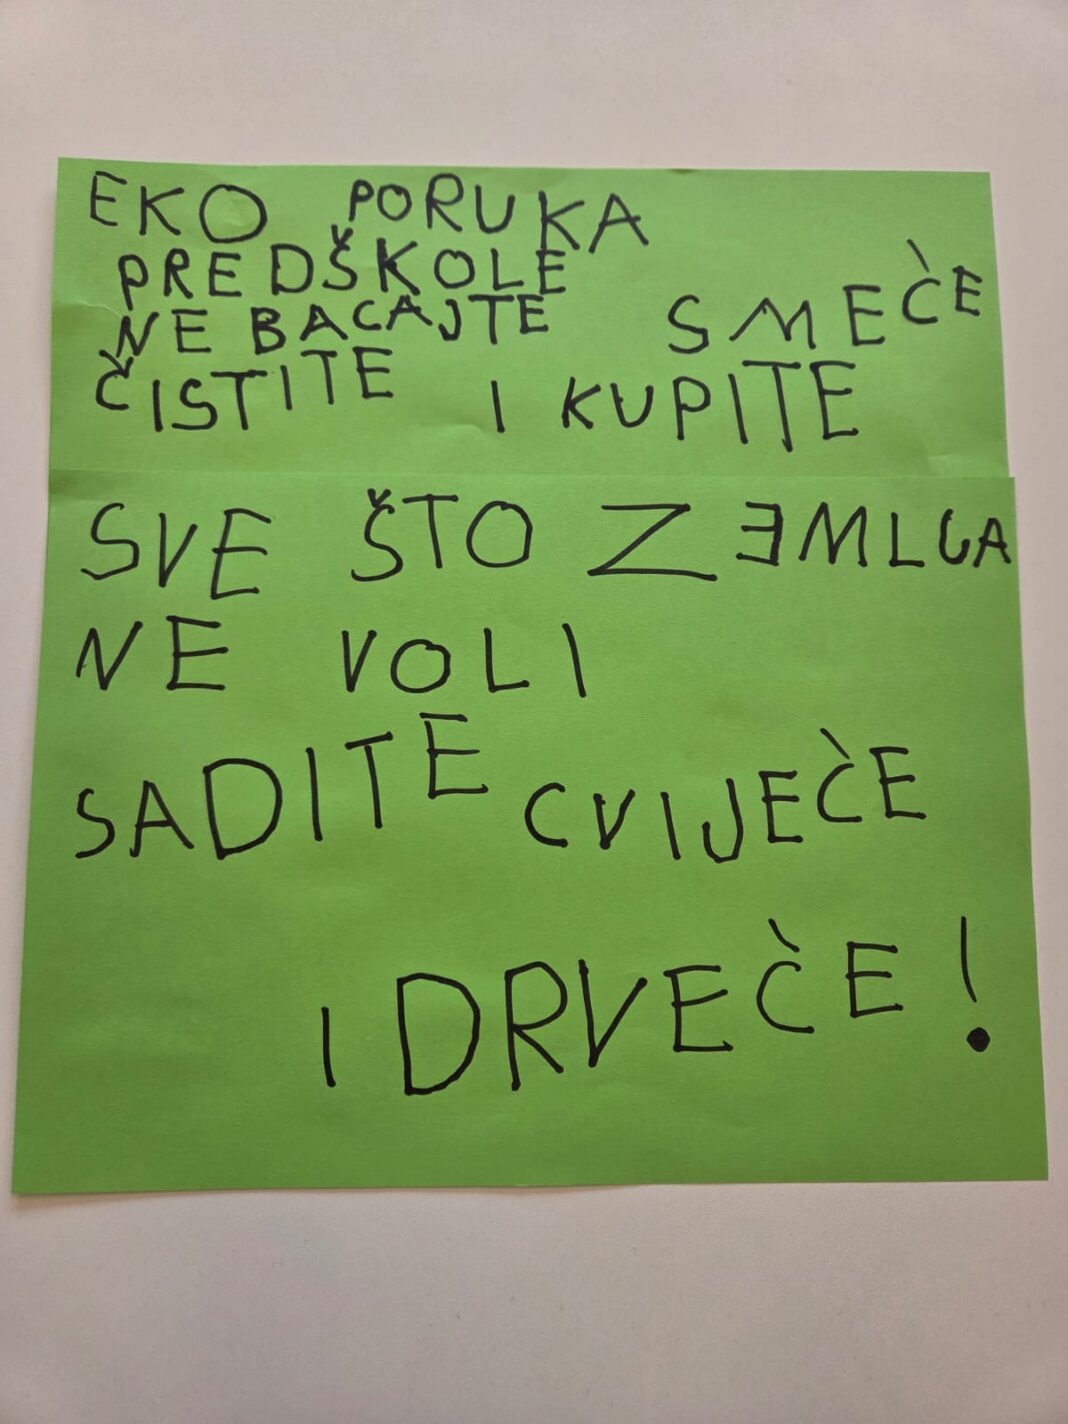 EKO PORUKA
PREDŠKOLE
NE BACAJTE SMEÈE
ČISTITE I KUPITE
SVE ŠTO ZEMLJA
NE VOLI
SADITE CVIJEÈE
I DRVEÈE!